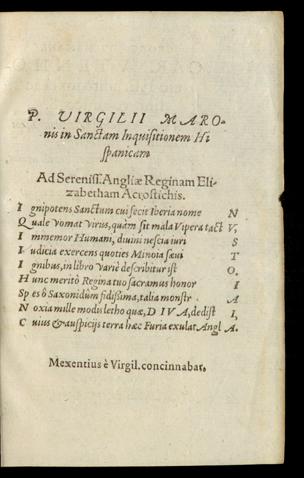 P. VIRGILII MARO-
nis in Sanctam Inquisitionem Hi
spanicam
Ad Sereniss. Angliæ Reginam Eli-
zabetham Acrostichis.
I gnipotens Sanctum cui fecit Iberia nome N
Q uale vomat virus, quàm sit mala Vipera tact V,
I mmemor Humani, divini nescia iuri S
I udicia exercens quoties Minoia sævi T
I gnibus, in libro variè describitur ist O,
H unc meritò Regina tuo sacramus honor I
Sp es ô Saxonidûm fidissima, talia monstr A
N oxia mille modis letho quæ, DIVA, dedist I,
C uius & auspicijs terra hæc Furia exulat Angl A.
Mexentius è Virgil. concinnabat.